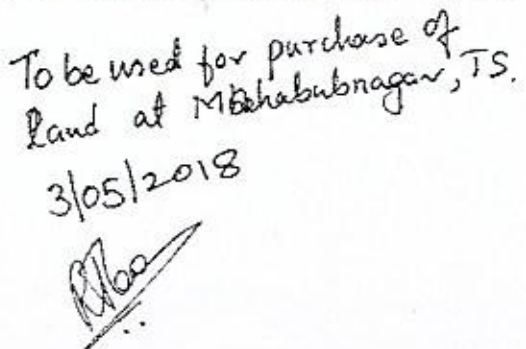 To be used for purchase of
land at Mahabubnagar, TS.
3/05/2018